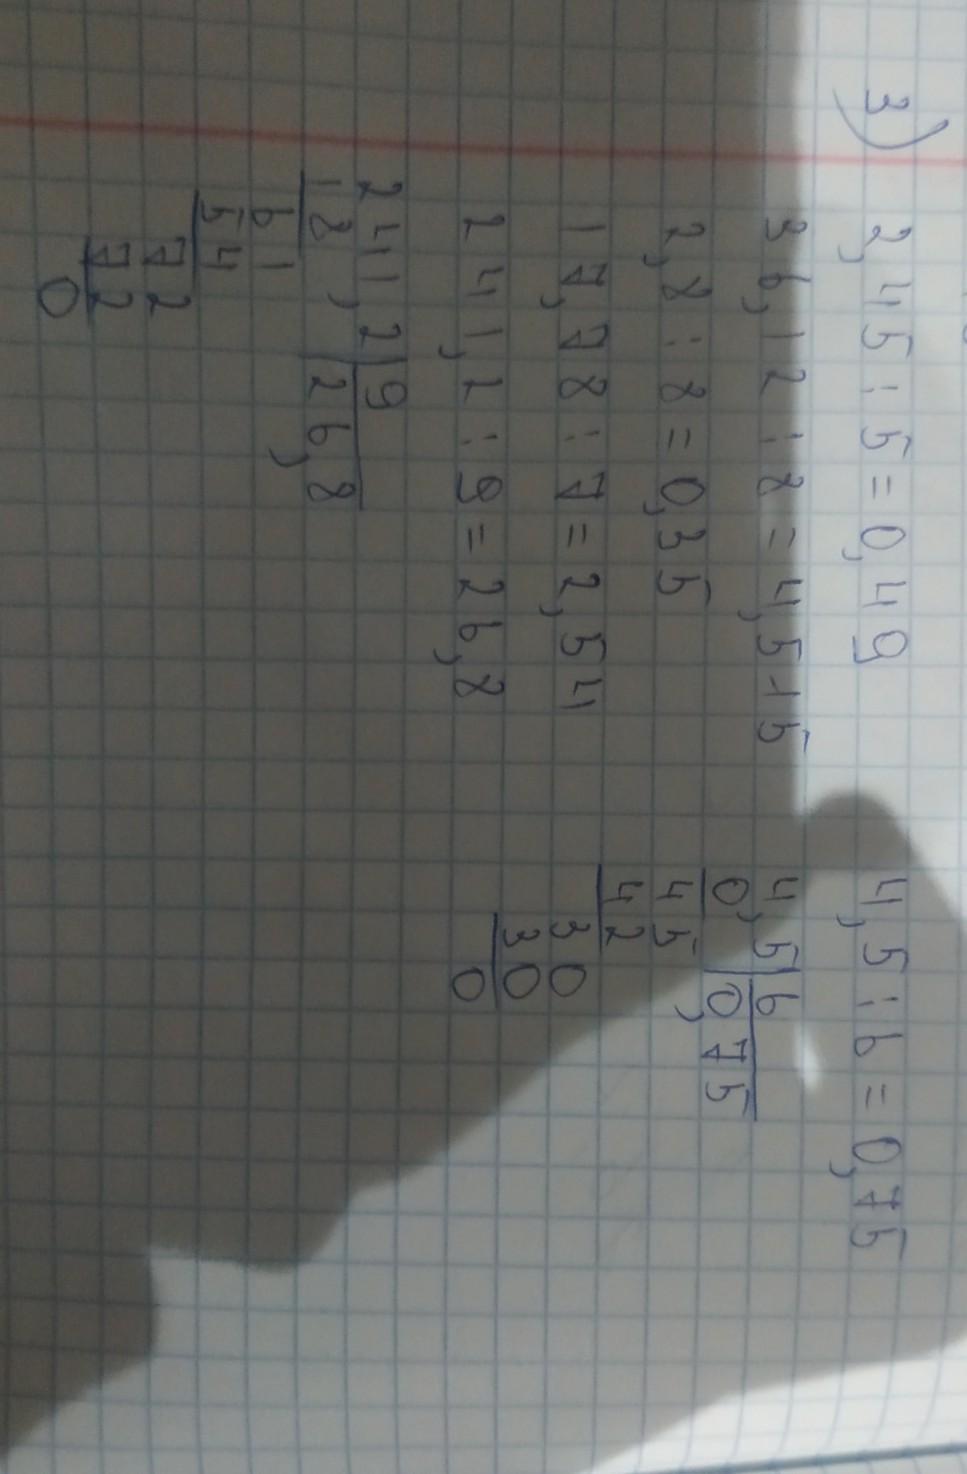 3) 2,45 : 5 = 0,49
36,12 : 8 = 4,515
2,8 : 8 = 0,35
17,78 : 7 = 2,54
241,2 : 9 = 26,8
241,2 | 9
18 | 26,8
61
54
72
72
0
4,5 : 6 = 0,75
4,5 | 6
0 | 0,75
45
42
30
30
0